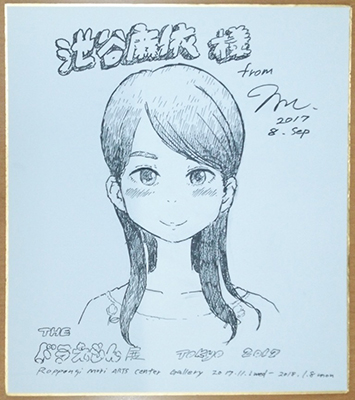 池谷麻依 様
from
2017
8. Sep
THE
ドラえもん展 Tokyo 2017
Roppongi Mori ARTS Center Gallery 2017.11.1wed-2018.1.8mon